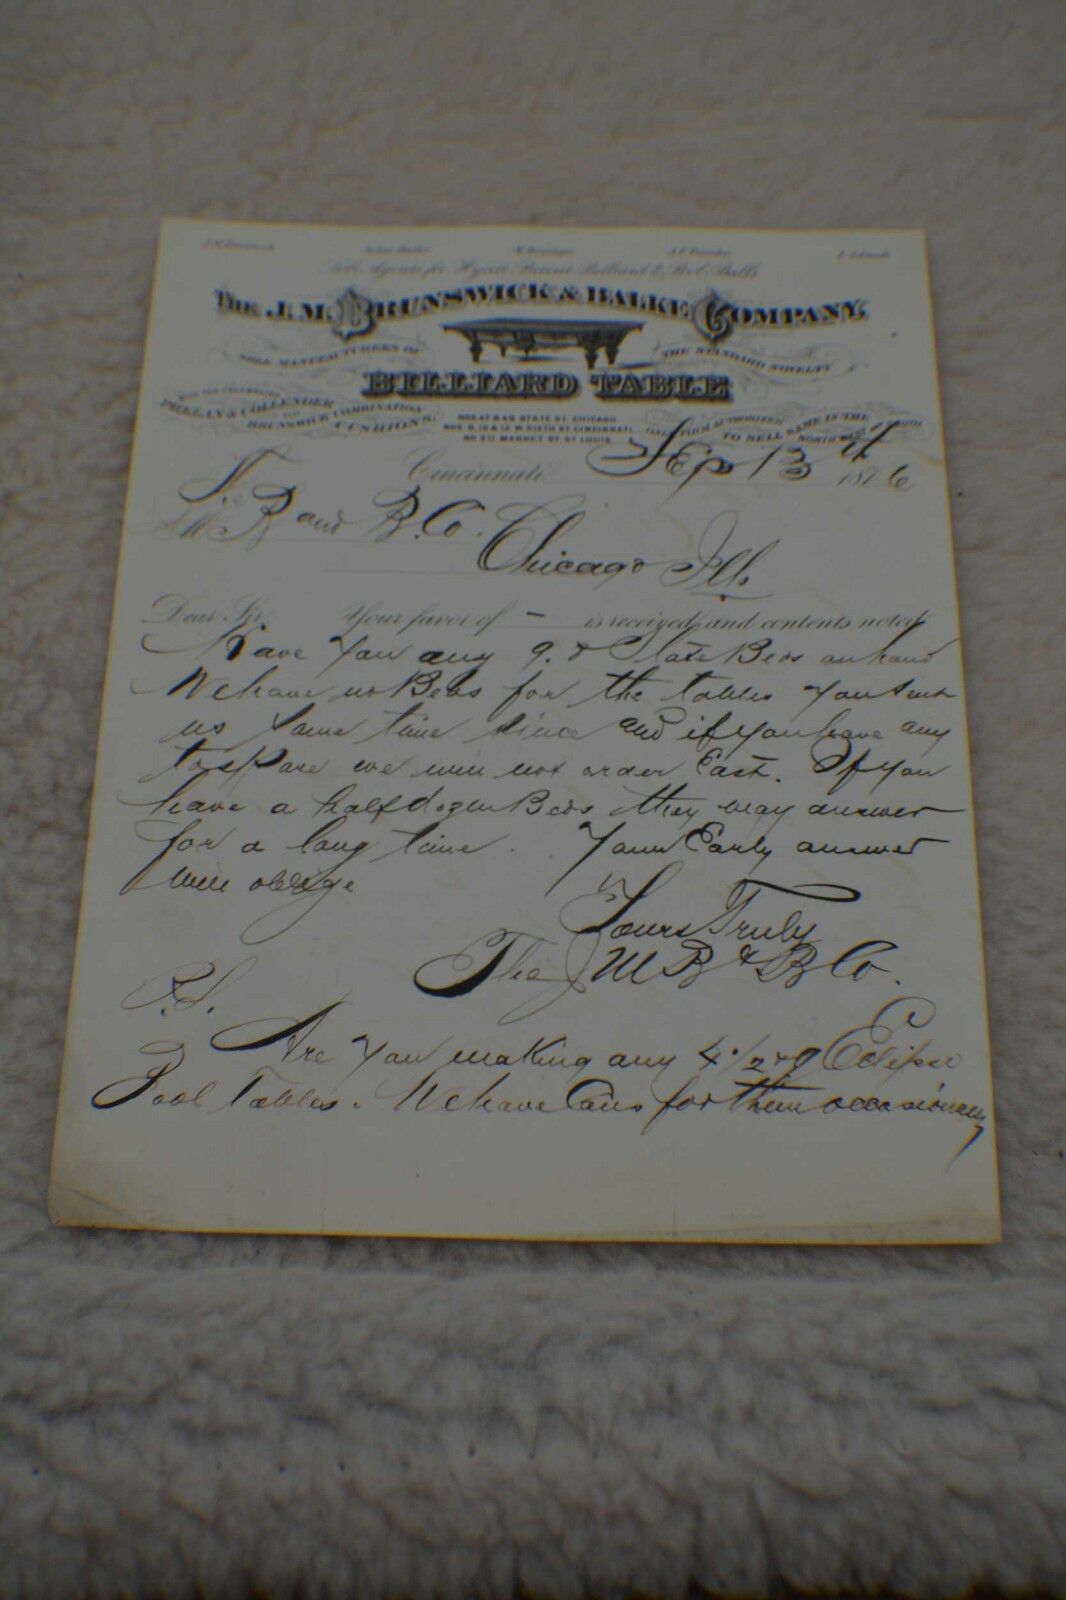 Sole Agents for Hyatt Patent Billiard & Pool Balls
THE J. M. BRUNSWICK & BALKE COMPANY.
SOLE MANUFACTURERS OF
THE STANDARD NOVELTY
BILLIARD TABLE
WITH THE CELEBRATED
PHELAN & COLLENDER
AND
BRUNSWICK COMBINATION
CUSHIONS.
NOS. 47 & 49 STATE ST. CHICAGO.
NOS. 8, 10 & 12 W. SIXTH ST. CINCINNATI.
NO 211 MARKET ST. ST LOUIS.
ONLY FIRM AUTHORIZED
TO SELL SAME IN THE
NORTHWEST AND SOUTH
Cincinnati Sep 13 1876
B and B. Co.
Chicago Ills
Dear Sir Your favor of – is received, and contents noted
Have You any 9. & Slate Beds on hand
We have no Beds for the tables You sent
us some time since and if you have any
to spare we will not order East. If You
have a half dozen Beds they may answer
for a long time. Your Early answer
will oblige
Yours Truly
The J M B & B Co.
P.S.
Are You making any 4 1/2 x 9 Eclipse
Pool Tables. We have Calls for them occasionally